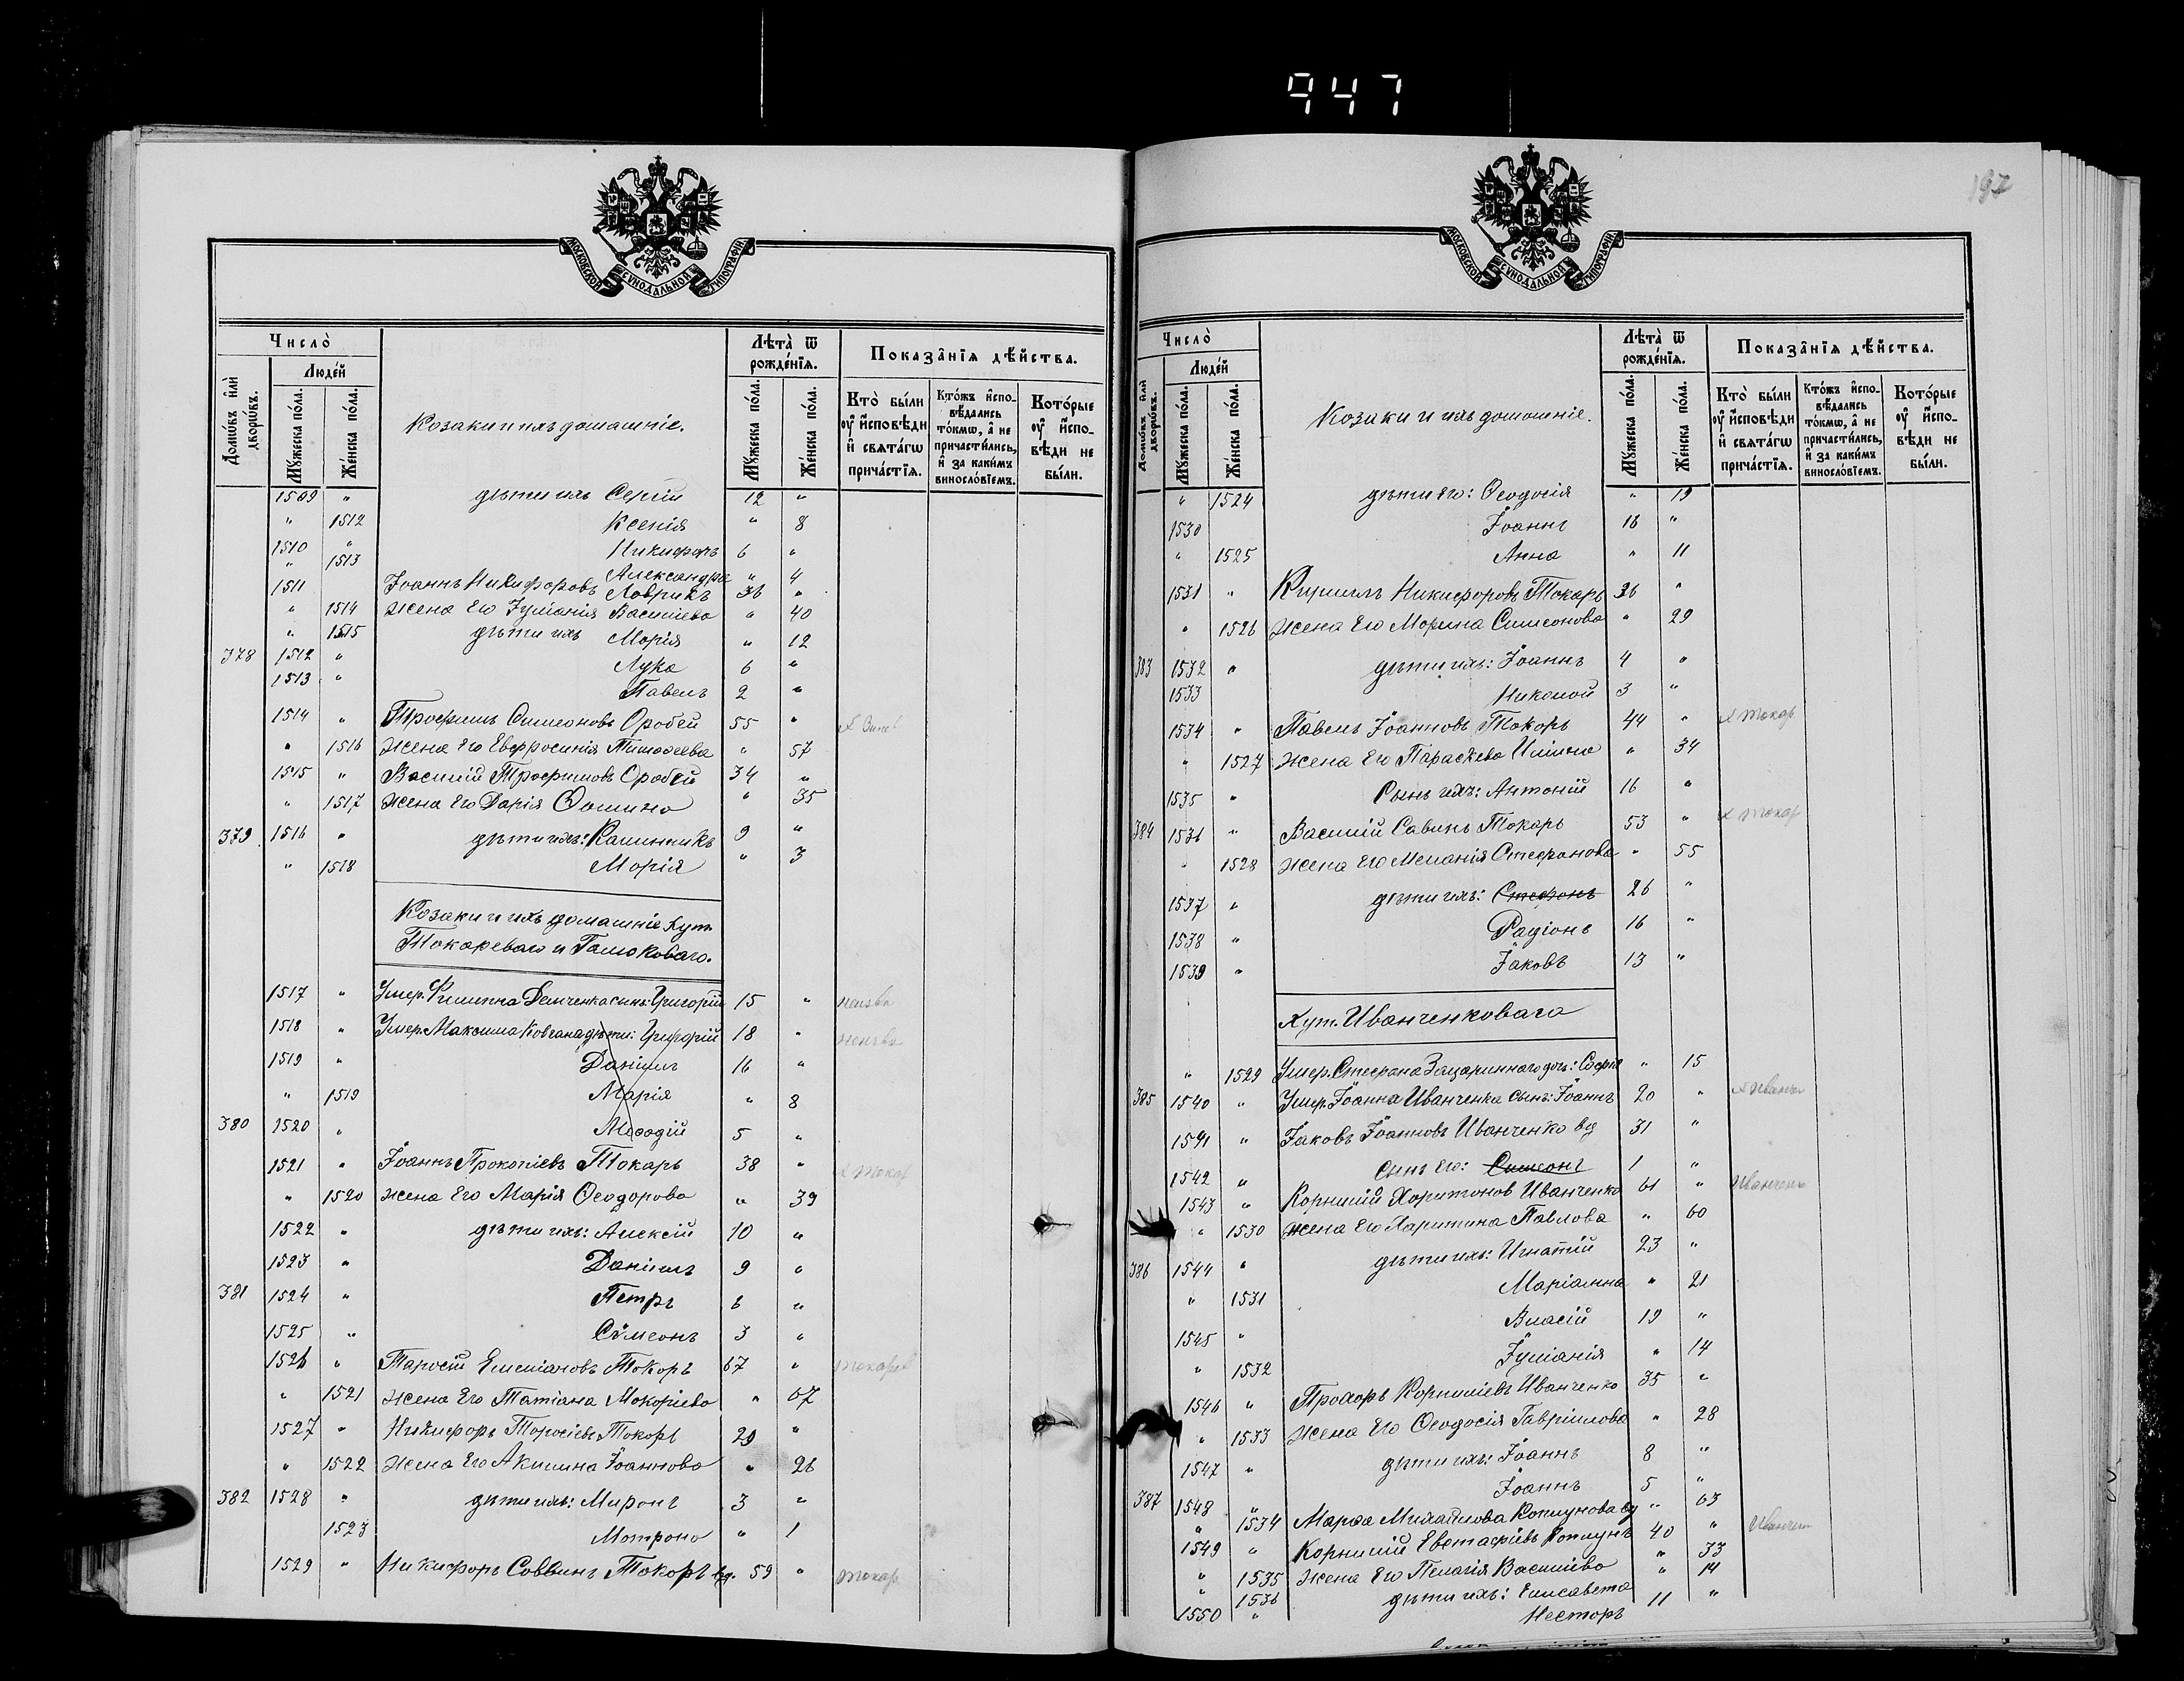 947
МОСКОВСКОЙ СУНОДАЛЬНОЙ ТИПОГРАФІИ
Число̀
Лѣта̀ ѿ рожде́нїѧ.
Показа̑нїѧ дѣ́йства.
Домѡ́въ и҆лѝ дворѡ́въ.
Люде́й
Мꙋ́жеска по́ла.
Же́нска по́ла.
Козаки и ихъ домашніе.
Мꙋ́жеска по́ла.
Же́нска по́ла.
Кто̀ бы́ли ᲂу҆ и҆сповѣди и҆ свѧта́гѡ прича́стїѧ.
Кто́жъ и҆спо-вѣдались то́кмѡ, а҆ не причасти́лись, и҆ за каки́мъ винословїемъ.
Кото́рые ᲂу҆ и҆спо-вѣди не бы́ли.
1509 " дѣти ихъ Сергій 12 "
" 1512 Ксенія " 8
1510 " Никифоръ 6 "
" 1513 Александра " 4
1511 Іоаннъ Никифоровъ Лаврикъ 36 "
" 1514 Жена его Іуліанія Василіева " 40
" 1515 дѣти ихъ Марія " 12
378 1512 " Лука 6 "
1513 " Павелъ 2 "
1514 " Трофимъ Симеоновъ Оробей 55 "
" 1516 Жена его Евфросинія Тимофеева " 57
1515 " Василій Трофимовъ Оробей 34 "
" 1517 Жена его Дарія Ѳомина " 35
379 1516 " дѣти ихъ: Каллиникъ 9 "
" 1518 Марія " 3
Козаки и ихъ домашніе хут.
Токареваго и Галюковаго.
1517 " Умер. Филиппа Демченка сынъ: Григорій 15 "
1518 " Умер. Максима Ковгана дѣти: Григорій 18 "
1519 " Даніилъ 16 "
" 1519 Марія " 8
380 1520 " Меѳодій 5 "
1521 " Іоаннъ Прокопіевъ Токарь 38 " Токар
" 1520 Жена его Марія Ѳеодорова " 39
1522 " дѣти ихъ: Алексій 10 "
1523 " Даніилъ 9 "
381 1524 " Петръ 6 "
1525 " Сѵмеонъ 3 "
1526 " Тарасій Емеліановъ Токарь 67 " токарев
" 1521 Жена его Татіана Макаріева " 67
1527 " Никифоръ Тарасіевъ Токарь 29 "
" 1522 Жена его Акилина Іоаннова " 26
382 1528 " дѣти ихъ: Миронъ 3 "
1523 Матрона " 1
1529 " Никифоръ Саввинъ Токарь вд. 59 " токар
197
МОСКОВСКОЙ СУНОДАЛЬНОЙ ТИПОГРАФІИ
Число̀
Лѣта̀ ѿ рожде́нїѧ.
Показа̑нїѧ дѣ́йства.
Домѡ́въ и҆лѝ дворѡ́въ.
Люде́й
Мꙋ́жеска по́ла.
Же́нска по́ла.
Козаки и ихъ домашніе.
Мꙋ́жеска по́ла.
Же́нска по́ла.
Кто̀ бы́ли ᲂу҆ и҆сповѣди и҆ свѧта́гѡ прича́стїѧ.
Кто́жъ и҆спо-вѣдались то́кмѡ, а҆ не причасти́лись, и҆ за каки́мъ винословїемъ.
Кото́рые ᲂу҆ и҆спо-вѣди не бы́ли.
" 1524 дѣти его: Ѳеодосія " 19
1530 Іоаннъ 16 "
" 1525 Анна " 11
1531 " Кириллъ Никифоровъ Токарь 36 "
" 1526 Жена его Марина Симеонова " 29
383 1532 " дѣти ихъ: Іоаннъ 4 "
1533 Николай 3 "
1534 " Павелъ Іоанновъ Токарь 44 " Токар
" 1527 Жена его Параскева Иліина " 34
1535 " Сынъ ихъ: Антоній 16 "
384 1536 " Василій Савинъ Токарь 53 " Токар
" 1528 Жена его Меланія Стефанова " 55
1537 " дѣти ихъ: Стефанъ 26 "
1538 " Радіонъ 16 "
1539 " Іаковъ 13 "
Хут. Иванченковаго
" 1529 Умер. Стефана Зацариннаго доч: Софія " 15
385 1540 " Умер. Іоанна Иванченка сынъ: Іоаннъ 20 "
1541 " Іаковъ Іоанновъ Иванченко вд 31 "
1542 " сынъ его: Симеонъ 1 "
1543 " Корнилій Харитоновъ Иванченко 61 " Иванченк
" 1530 Жена его Харитина Павлова " 60
386 1544 " дѣти ихъ: Игнатій 23 "
" 1531 Маріамна " 21
1545 " Власій 19 "
" 1532 Іуліанія " 14
1546 " Прохоръ Корниліевъ Иванченко 35 "
" 1533 Жена его Ѳеодосія Гавріилова " 28
1547 " дѣти ихъ: Іоаннъ 8 "
387 1548 " Іоаннъ 5 "
" 1534 Марѳа Михайлова Колтунова вд " 63
1549 " Корнилій Евстафіевъ Колтунъ 40 "
" 1535 Жена его Пелагія Василіева " 33
" 1536 дѣти ихъ: Елисавета " 14
1550 " Несторъ 11 "